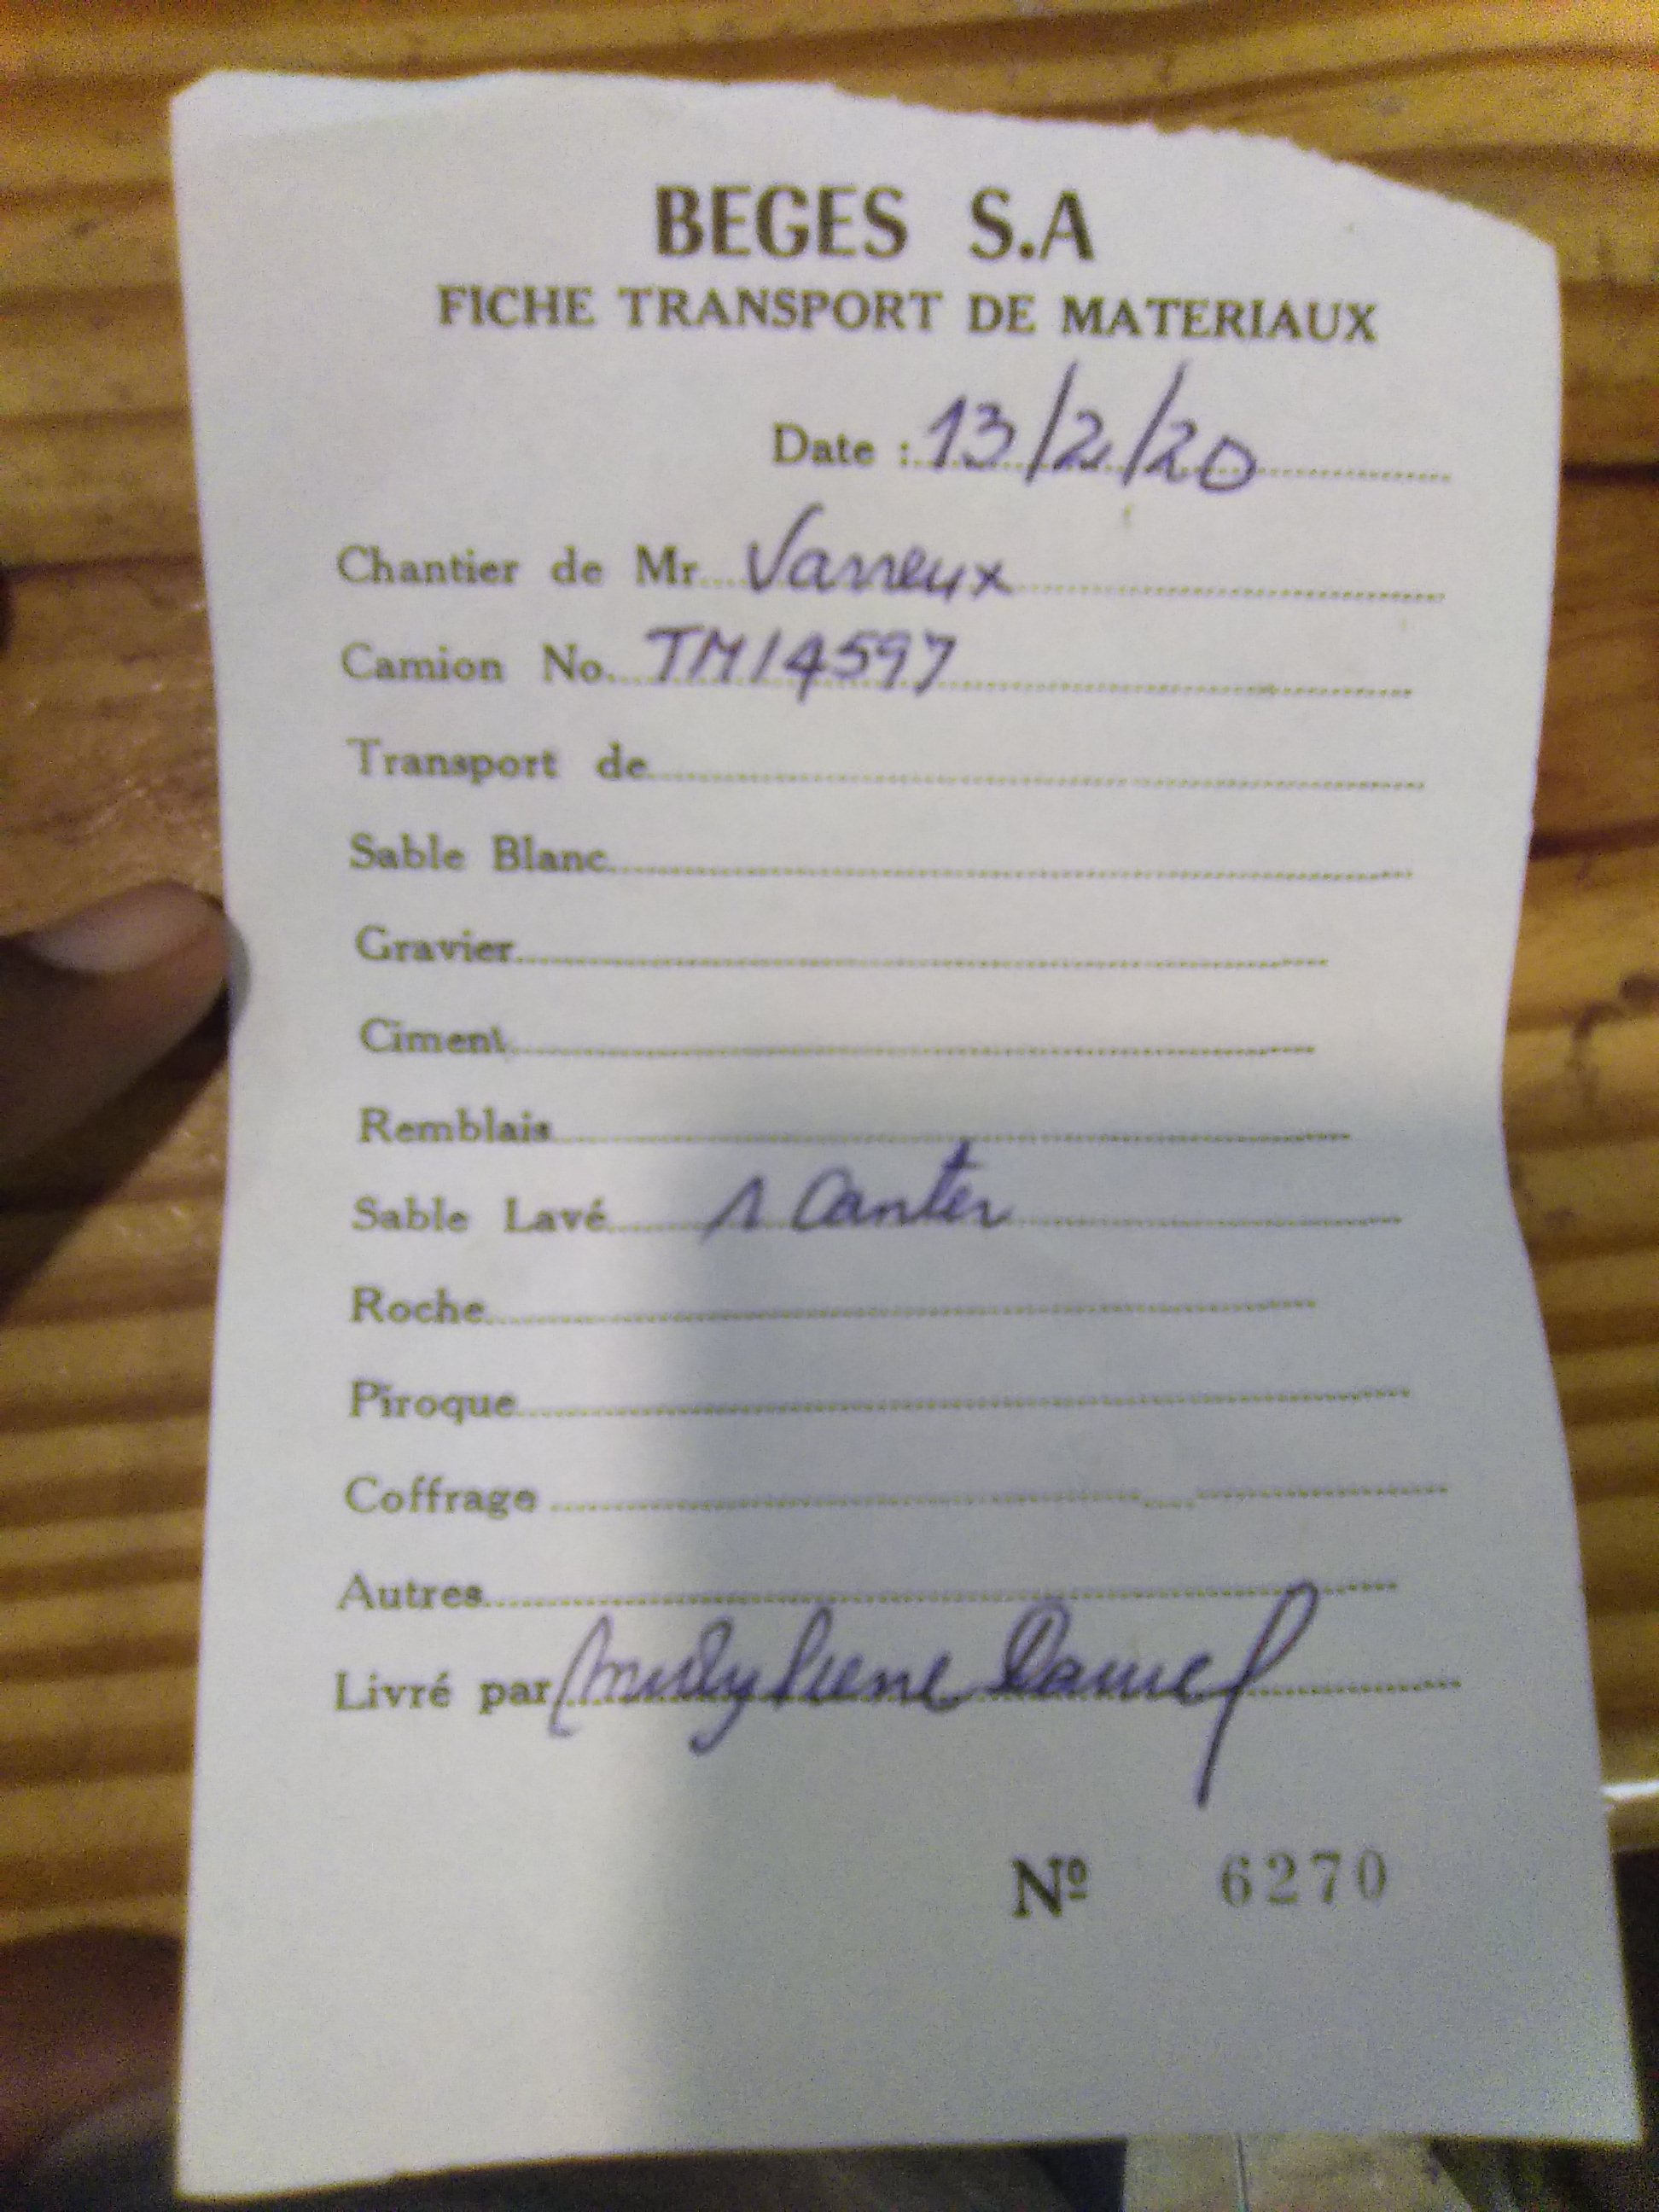 BEGES S.A
FICHE TRANSPORT DE MATERIAUX
Date : 13/2/20
Chantier de Mr Varreux
Camion No. TM14597
Transport de
Sable Blanc
Gravier
Ciment
Remblais
Sable Lavé 1 Canter
Roche
Piroque
Coffrage
Autres
Livré par Pierre Daniel
Nº 6270